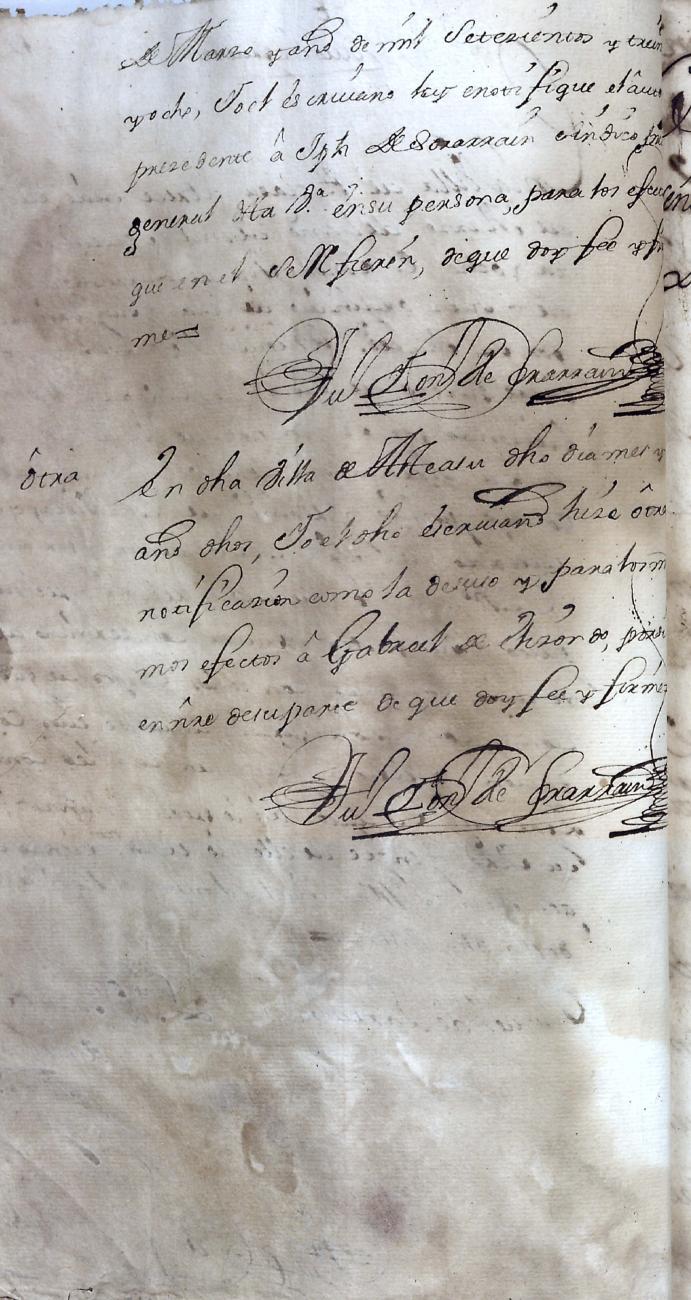 de Marzo y año de mil Setezientos y trein
y ocho, Yo el escriuano ley e notifique el auto
prezedente â Jph de Sorarrain sindico pro
general desta Va. en su persona, para los efectos
que en el se refieren, de que doy fee y fir
me=
Ju. Anto. de Yrarrain
ôtra
En dha Villa de Aleatu dho dia mes y
año dhos, Yo el dho escriuano hize ôtra
notificazion como la desuso y para los mis
mos efectos â Gabriel de Elizondo, por si
en nre de su parte de que doy fee y firme
Ju. Anto. de Yrarrain